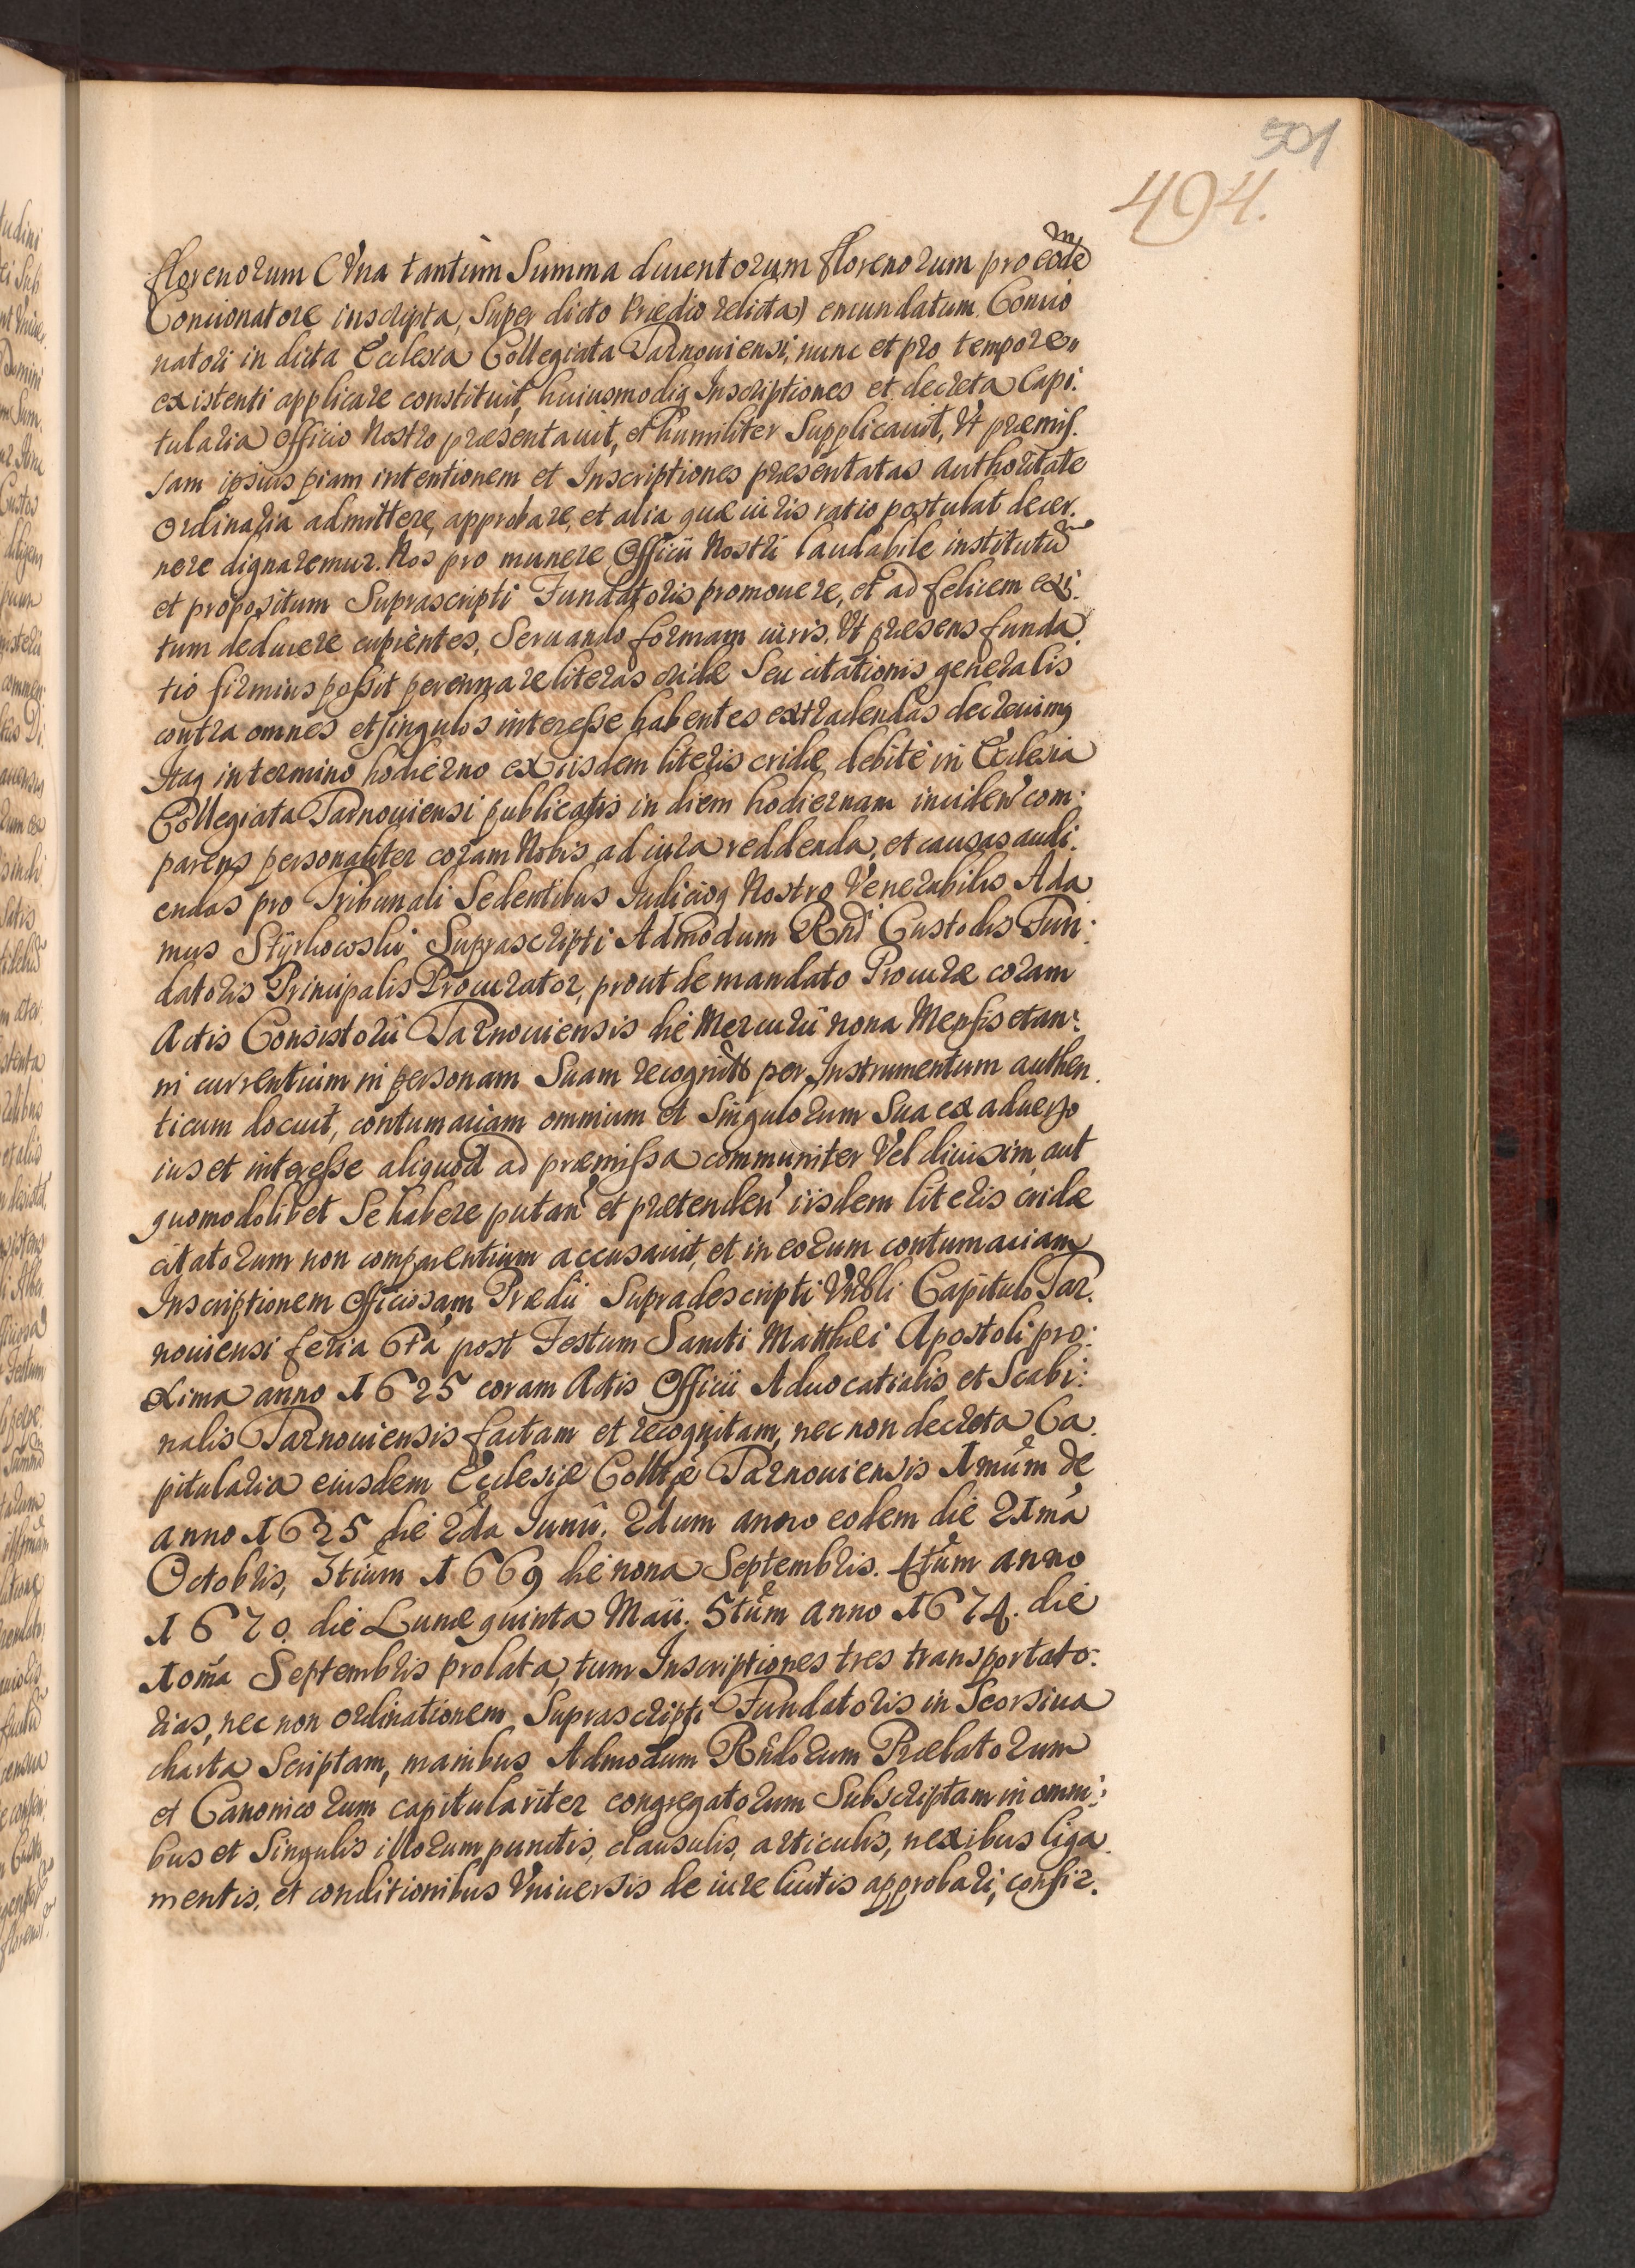 501
494.
florenorum (Vna tantum Summa ducentorum florenorum pro eode m
Concionatore inscripta, Super dicto Prædio relicta) emundatum. Concio
natori in dicta Ecclesia Collegiata Tarnouiensi, nunc et pro tempore
existenti applicare constituit, huiusmodiq Inscriptiones et decreta Capi:
tularia Officio Nostro præsentauit, et humiliter Supplicauit, Vt præmis.
sam ipsius piam intentionem et Inscriptiones præsentatas Authoritate
Ordinaria admittere, approbare, et alia quæ iuris ratio postulat decer.
nere dignaremur. Nos pro munere Officii Nostri laudabile institutū
et propositum Suprascripti Fundatoris promouere, et ad felicem exi:
tum deducere cupientes, Seruando formam iuris, Vt præsens funda
tio firmius possit perennare literas cridæ Seu citationis generalis
contra omnes et singulos interesse habentes extradendas decreuimq
Itaq in termino hodierno ex iisdem literis cridæ debitè in Ecclesia
Collegiata Tarnouiensi publicatis in diem hodiernam inciden' com:
parens personaliter coram Nobis ad iura reddenda, et causas audi:
endas pro Tribunali Sedentibus Iudicioq Nostro Venerabilis Ada
mus Styrkowski Suprascripti Admodum Rndi Custodis Fun:
datoris Principalis Procurator, prout de mandato Procuræ coram
Actis Consistorii Tarnouiensis die Mercurii nona Mensis et an:
ni currentium in personam Suam recognito per Instrumentum authen.
ticum docuit, contumaciam omnium et Singulorum Sua ex aduerso
ius et interesse aliquod ad præmissa communiter Vel diuisim, aut
quomodolibet Se habere putan' et prætenden' iisdem literis cridæ
citatorum non comparentium accusauit, et in eorum contumaciam
Inscriptionem Officiosam Prædii Supradescripti Vnbli Capitulo Tar.
nouiensi feria 6ta post Festum Sancti Matthæi Apostoli pro:
xima anno 1625 coram Actis Officii Aduocatialis et Scabi:
nalis Tarnouiensis factam et recognitam, nec non decreta Ca.
pitularia eiusdem Ecclesiæ Colltæ Tarnouiensis 1mum de
anno 1625 die 2da Iunii. 2dum anno eodem die 21ma
Octobris, 3tium 1669 die nona Septembris. 4tum anno
1670. die Lunæ quinta Maii. 5tum anno 1674. die
10ma Septembris prolata, tum Inscriptiones tres transportato:
rias, nec non ordinationem Suprascripti Fundatoris in Seorsiua
charta Scriptam, manibus Admodum Rndorum Prælatorum
et Canonicorum capitulariter congregatorum Subscriptam in omni:
bus et Singulis illorum punctis, clausulis, articulis, nexibus liga.
mentis, et conditionibus Vniuersis de iure licitis approbari, confir.